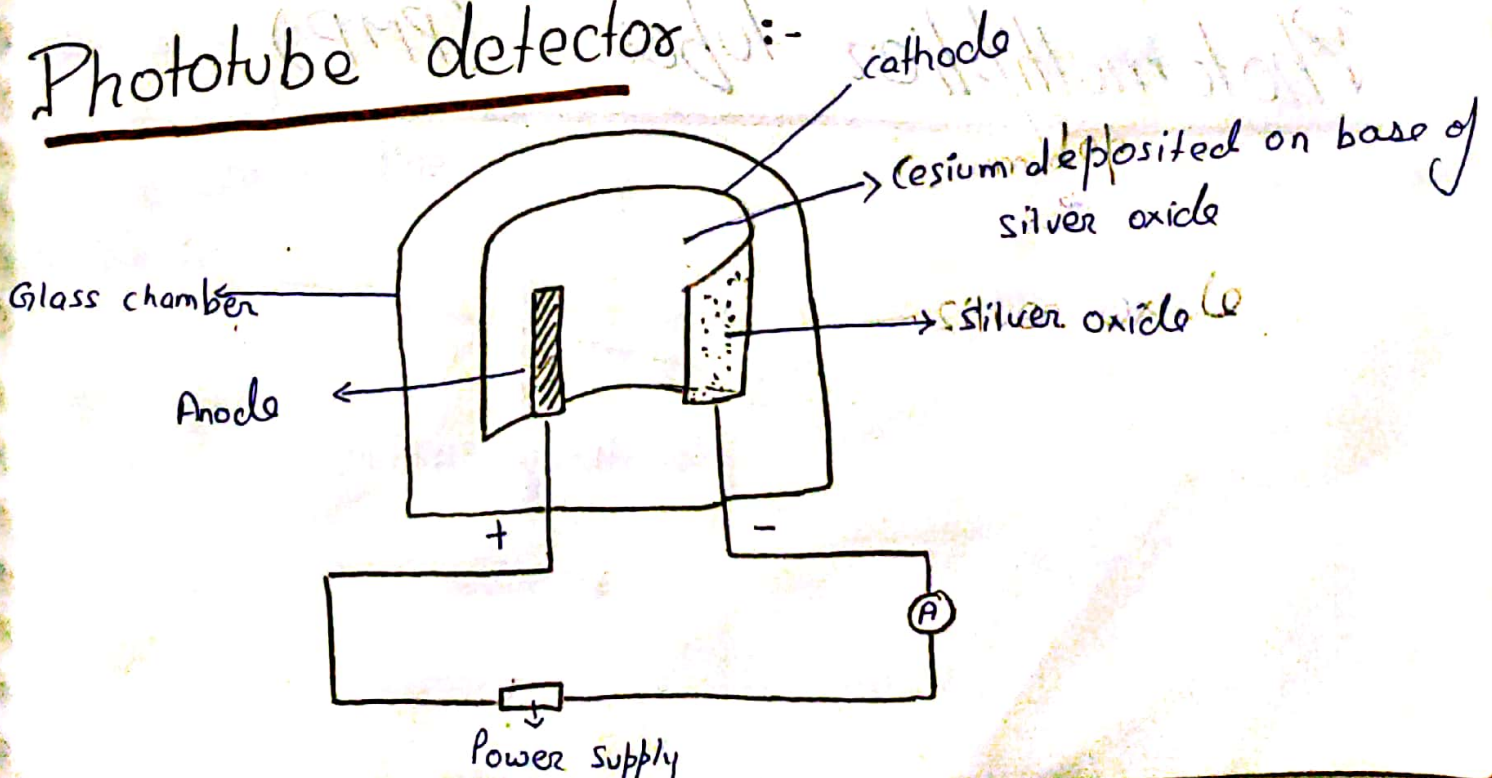 Phototube detector :-
cathode
Cesium deposited on base of
silver oxide
Glass chamber
silver oxide
Anode
+
-
A
Power supply